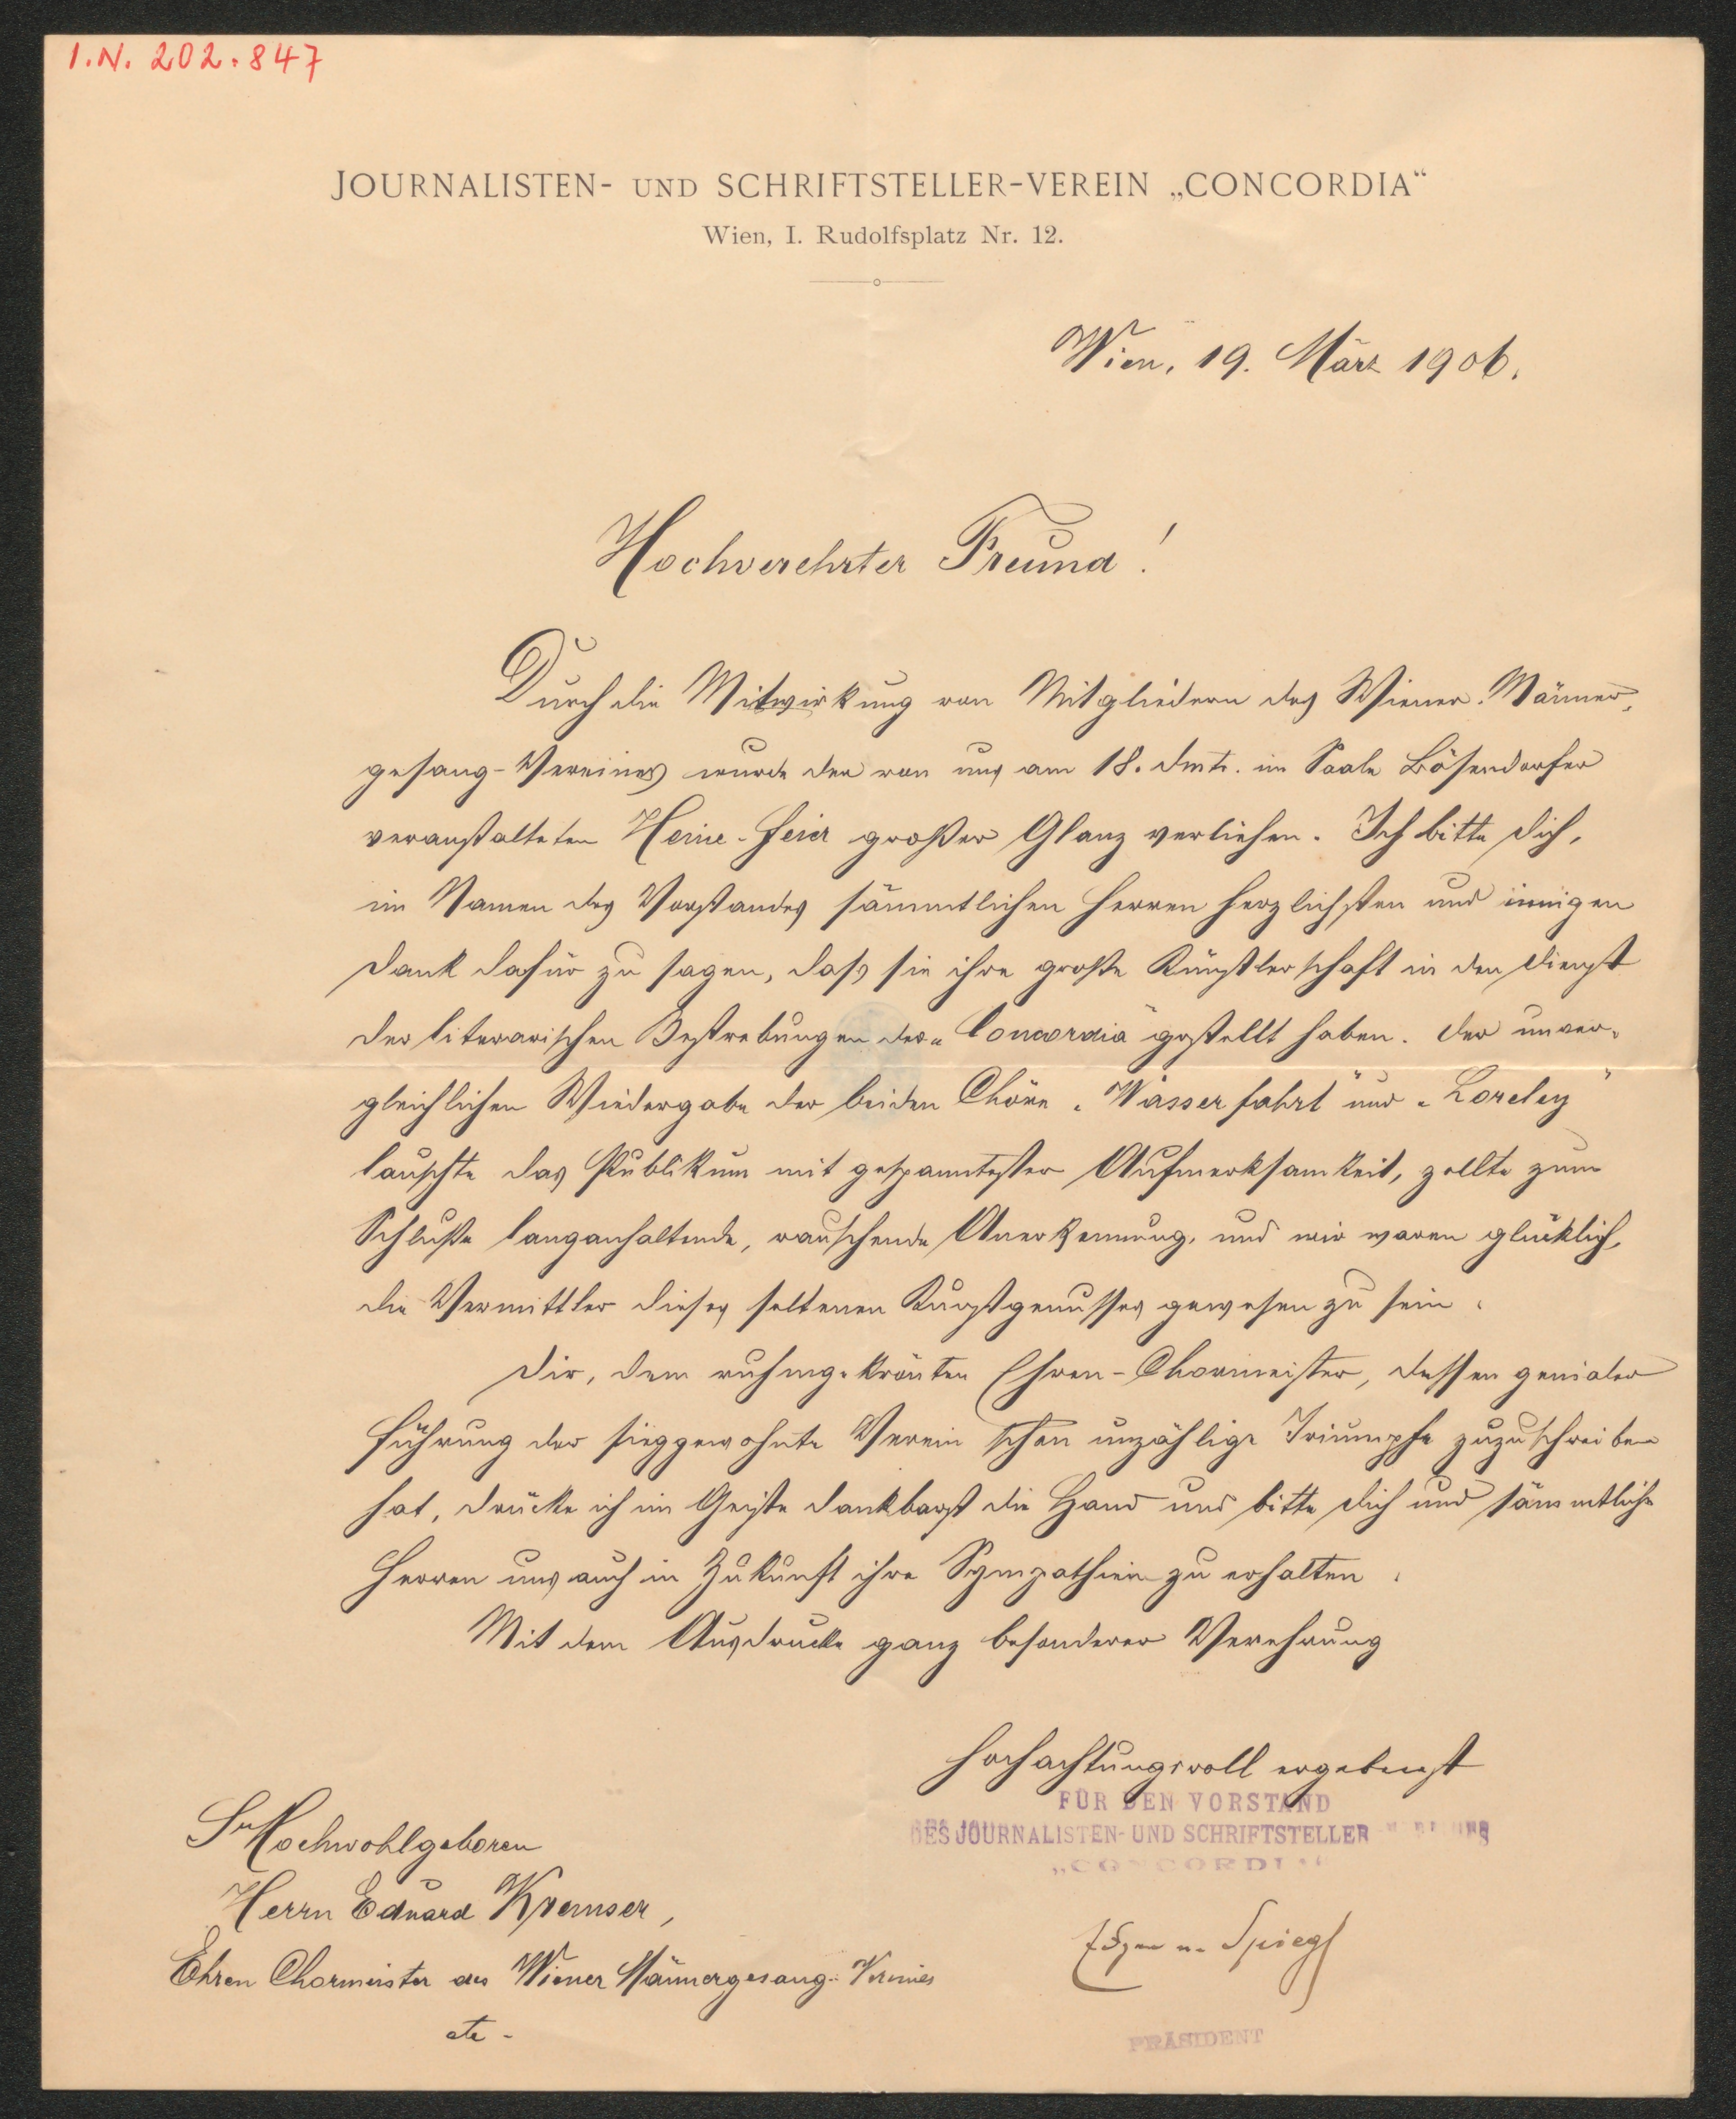 I.N. 202.847
JOURNALISTEN- UND SCHRIFTSTELLER-VEREIN „CONCORDIA“
Wien, I. Rudolfsplatz Nr. 12.
Wien, 19. März 1906.
Hochverehrter Freund!
Durch die Mitwirkung von Mitgliedern des Wiener Männer-
gesang-Vereines wurde der von uns am 18. dmts. im Saale Bösendorfer
veranstalteten Heine-Feier großer Glanz verliehen. Ich bitte Dich,
im Namen des Vorstandes sämmtlichen Herren herzlichsten und innigen
Dank dafür zu sagen, dass sie ihre große Künstlerschaft in den Dienst
der literarischen Bestrebungen der „Concordia“ gestellt haben. Der unver-
gleichlichen Wiedergabe der beiden Chöre „Wasserfahrt“ und „Loreley“
lauschte das Publikum mit gespanntester Aufmerksamkeit, zollte zum
Schluße langanhaltende, rauschende Anerkennung, und wir waren glücklich,
die Vermittler dieses seltenen Kunstgenusses gewesen zu sein.
Dir, dem ruhmgekrönten Ehren-Chormeister, dessen genialer
Führung der sieggewohnte Verein schon unzählige Triumpfe zuzuschreiben
hat, drücke ich im Geiste dankbarst die Hand und bitte Dich und sämmtliche
Herren uns auch in Zukunft ihre Sympathien zu erhalten.
Mit dem Ausdrucke ganz besonderer Verehrung
hochachtungsvoll ergebenst
FÜR DEN VORSTAND
DES JOURNALISTEN- UND SCHRIFTSTELLER-VEREINS
„CONCORDIA“
Edgar v. Spiegl
PRÄSIDENT
Sr Hochwohlgeboren
Herrn Eduard Kremser,
Ehren Chormeister des Wiener Männergesang-Vereines
etc.